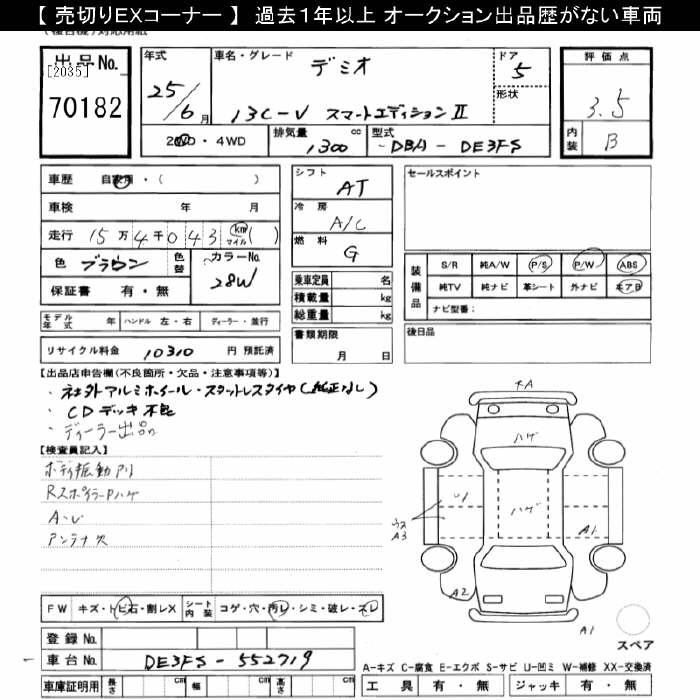 【 売切りEXコーナー 】 過去1年以上 オークション出品歴がない車両
出品No.
[2035]
70182
年式
25/6月
車名・グレード
デミオ
13C-V スマートエディションⅡ
ドア
5
形状
評価点
3.5
内装
B
2WD・4WD
排気量 1300 cc
型式 -DBA-DE3FS
車歴 自家用・( )
車検 年 月
走行 15万4千043 km マイル ( )
色 ブラウン
色替
カラーNo. 28W
保証書 有・無
シフト AT
冷房 A/C
燃料 G
乗車定員 名
積載量 kg
総重量 kg
書類期限
月 日
セールスポイント
装備品
S/R 純A/W P/S P/W ABS
純TV 純ナビ 革シート 外ナビ エアB
ナビ型番:
後日品
モデル年式 年 ハンドル 左・右 ディーラー・並行
リサイクル料金 10310 円 預託済
【出品店申告欄(不良箇所・欠品・注意事項等)】
・社外アルミホイール・スタットレスタイヤ(純正なし)
・CDデッキ不良
・ディーラー出品
【検査員記入】
ボディ振動アリ
RスポイラーPハゲ
A・U
アンテナ欠
ハゲ
ハゲ
U1
A3
A1
A2
A1
FW キズ・トビ石・割レX
シート内装 コゲ・穴・汚レ・シミ・破レ・スレ
登録No.
車台No. DE3FS-552719
車庫証明用 長さ cm 幅 cm 高さ cm
スペア
A-キズ C-腐食 E-エクボ S-サビ U-凹ミ W-補修 XX-交換済
工具 有・無 ジャッキ 有・無